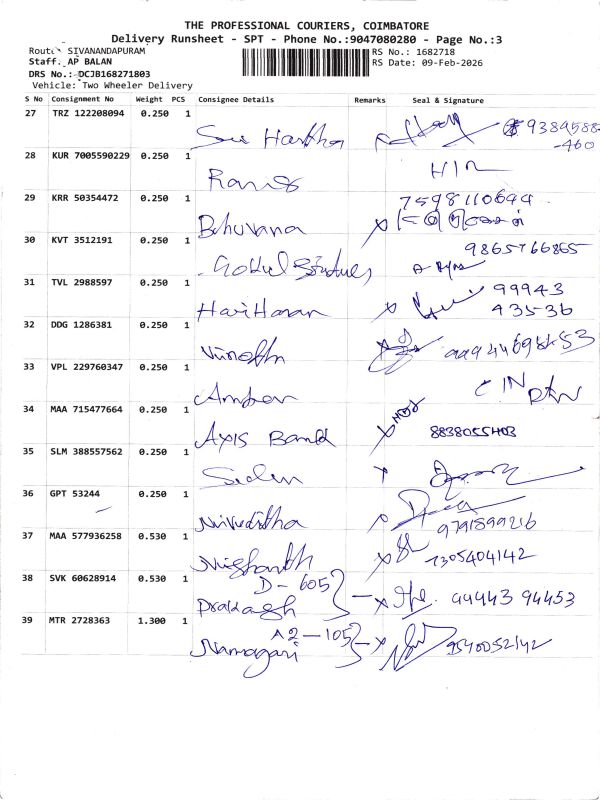 THE PROFESSIONAL COURIERS, COIMBATORE
Delivery Runsheet - SPT - Phone No.:9047080280 - Page No.:3
Route: SIVANANDAPURAM
RS No.: 1682718
Staff: AP BALAN
RS Date: 09-Feb-2026
DRS No.: DCJB168271803
Vehicle: Two Wheeler Delivery
S No Consignment No Weight PCS Consignee Details Remarks Seal & Signature
27 TRZ 122208094 0.250 1 9389588
Hartha -460
28 KUR 7005590229 0.250 1
29 KRR 50354472 0.250 1 7598110694
Bhuvana
30 KVT 3512191 0.250 1 9865766865
Gokul
31 TVL 2988597 0.250 1 99943
HariHaran 93536
32 DDG 1286381 0.250 1
Vinoth
33 VPL 229760347 0.250 1
34 MAA 715477664 0.250 1
AXIS Bank 8838055403
35 SLM 388557562 0.250 1
36 GPT 53244 0.250 1
Niveditha 9791899216
37 MAA 577936258 0.530 1
Nishanth 7305404142
38 SVK 60628914 0.530 1 D-605
Prakash 94443 94453
39 MTR 2728363 1.300 1 A2-105
Namagari 9540052142